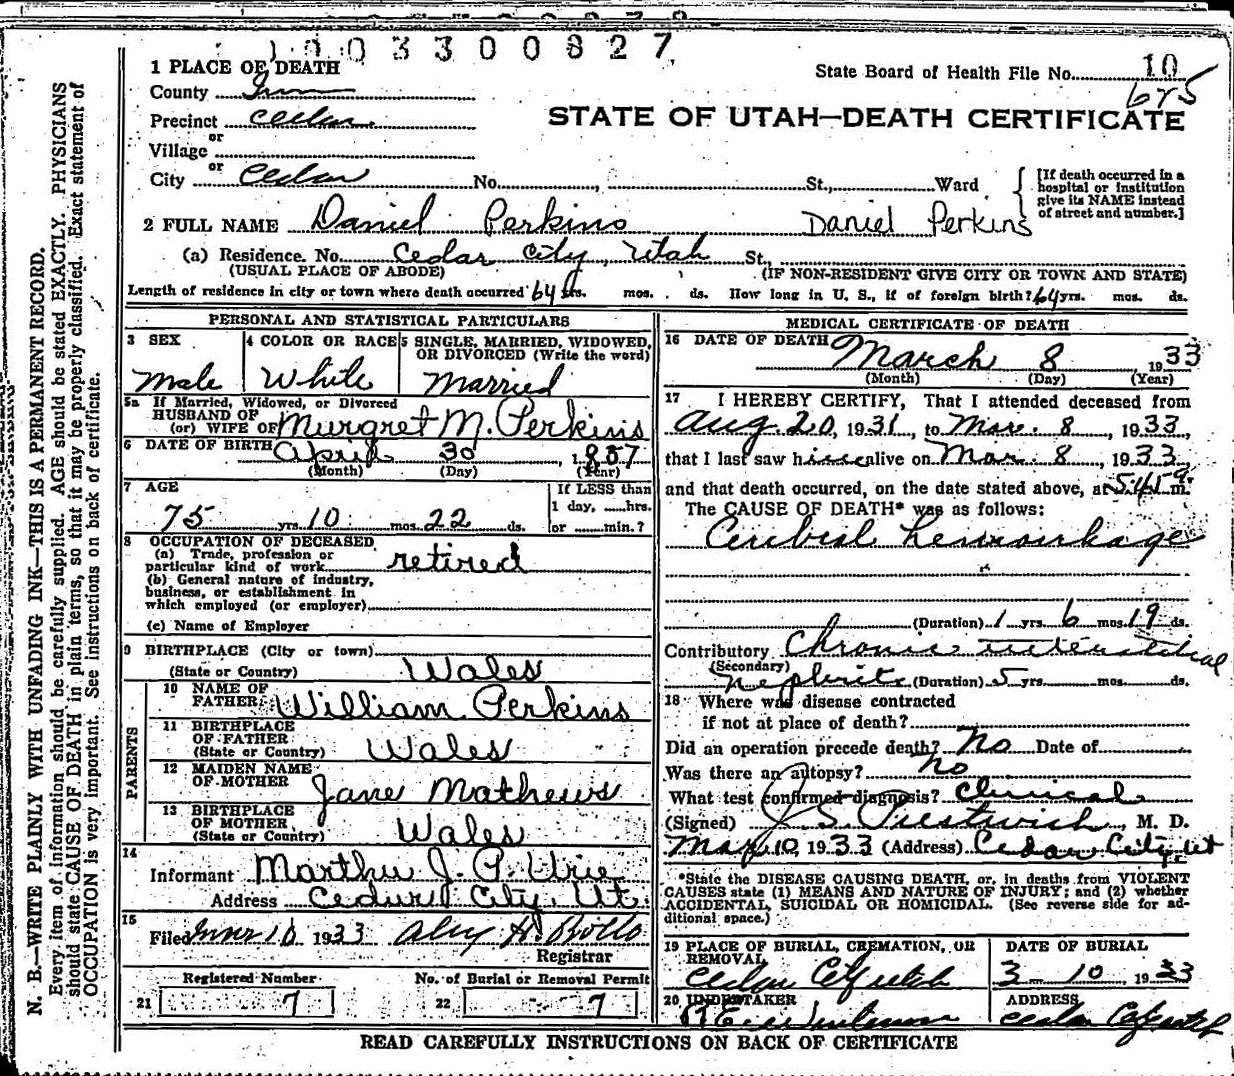 1 0 0 3 3 0 0 8 2 7
1 PLACE OF DEATH
State Board of Health File No. 10
675
County Iron
Precinct Cedar
STATE OF UTAH—DEATH CERTIFICATE
or
Village
or
City Cedar No. , St., Ward
[If death occurred in a hospital or institution give its NAME instead of street and number.]
2 FULL NAME Daniel Perkins Daniel Perkins
(a) Residence. No. Cedar City, Utah St.,
(USUAL PLACE OF ABODE) (IF NON-RESIDENT GIVE CITY OR TOWN AND STATE)
Length of residence in city or town where death occurred 64 yrs. mos. ds. How long in U. S., if of foreign birth? 64 yrs. mos. ds.
PERSONAL AND STATISTICAL PARTICULARS
3 SEX
Male
4 COLOR OR RACE
White
5 SINGLE, MARRIED, WIDOWED, OR DIVORCED (Write the word)
Married
5a If Married, Widowed, or Divorced
HUSBAND OF
(or) WIFE OF Murgret M. Perkins
6 DATE OF BIRTH April 30, 1857
(Month) (Day) (Year)
7 AGE
75 yrs. 10 mos. 22 ds.
If LESS than
1 day, hrs.
or min.?
8 OCCUPATION OF DECEASED
(a) Trade, profession or
particular kind of work retired
(b) General nature of industry,
business, or establishment in
which employed (or employer)
(c) Name of Employer
9 BIRTHPLACE (City or town)
(State or Country) Wales
PARENTS
10 NAME OF
FATHER William Perkins
11 BIRTHPLACE
OF FATHER
(State or Country) Wales
12 MAIDEN NAME
OF MOTHER Jane Mathews
13 BIRTHPLACE
OF MOTHER
(State or Country) Wales
14
Informant Martha J. P. Urie
Address Cedar City, Ut.
15
Filed Mar 10 1933 Alex H. Rollo
Registrar
Registered Number
21 7
No. of Burial or Removal Permit
22 7
MEDICAL CERTIFICATE OF DEATH
16 DATE OF DEATH March 8 1933
(Month) (Day) (Year)
17 I HEREBY CERTIFY, That I attended deceased from
Aug. 20, 1931, to Mar. 8, 1933,
that I last saw him alive on Mar. 8, 1933,
and that death occurred, on the date stated above, at 5:45 m.
The CAUSE OF DEATH* was as follows:
Cerebral hemorrhage
(Duration) 1 yrs. 6 mos. 19 ds.
Contributory Chronic interstitial
(Secondary)
nephritis (Duration) 5 yrs. mos. ds.
18 Where was disease contracted
if not at place of death?
Did an operation precede death? No Date of
Was there an autopsy? No
What test confirmed diagnosis? Clinical
(Signed) J. S. Prestwich, M. D.
Mar 10, 1933 (Address) Cedar City, Ut
*State the DISEASE CAUSING DEATH, or, in deaths from VIOLENT
CAUSES state (1) MEANS AND NATURE OF INJURY; and (2) whether
ACCIDENTAL, SUICIDAL OR HOMICIDAL. (See reverse side for ad-
ditional space.)
19 PLACE OF BURIAL, CREMATION, OR
REMOVAL
Cedar City Utah
DATE OF BURIAL
3 10 1933
20 UNDERTAKER
ADDRESS
Cedar City Utah
READ CAREFULLY INSTRUCTIONS ON BACK OF CERTIFICATE
N. B.—WRITE PLAINLY WITH UNFADING INK—THIS IS A PERMANENT RECORD.
Every item of information should be carefully supplied. AGE should be stated EXACTLY. PHYSICIANS
should state CAUSE OF DEATH in plain terms, so that it may be properly classified. Exact statement of
OCCUPATION is very important. See instructions on back of certificate.